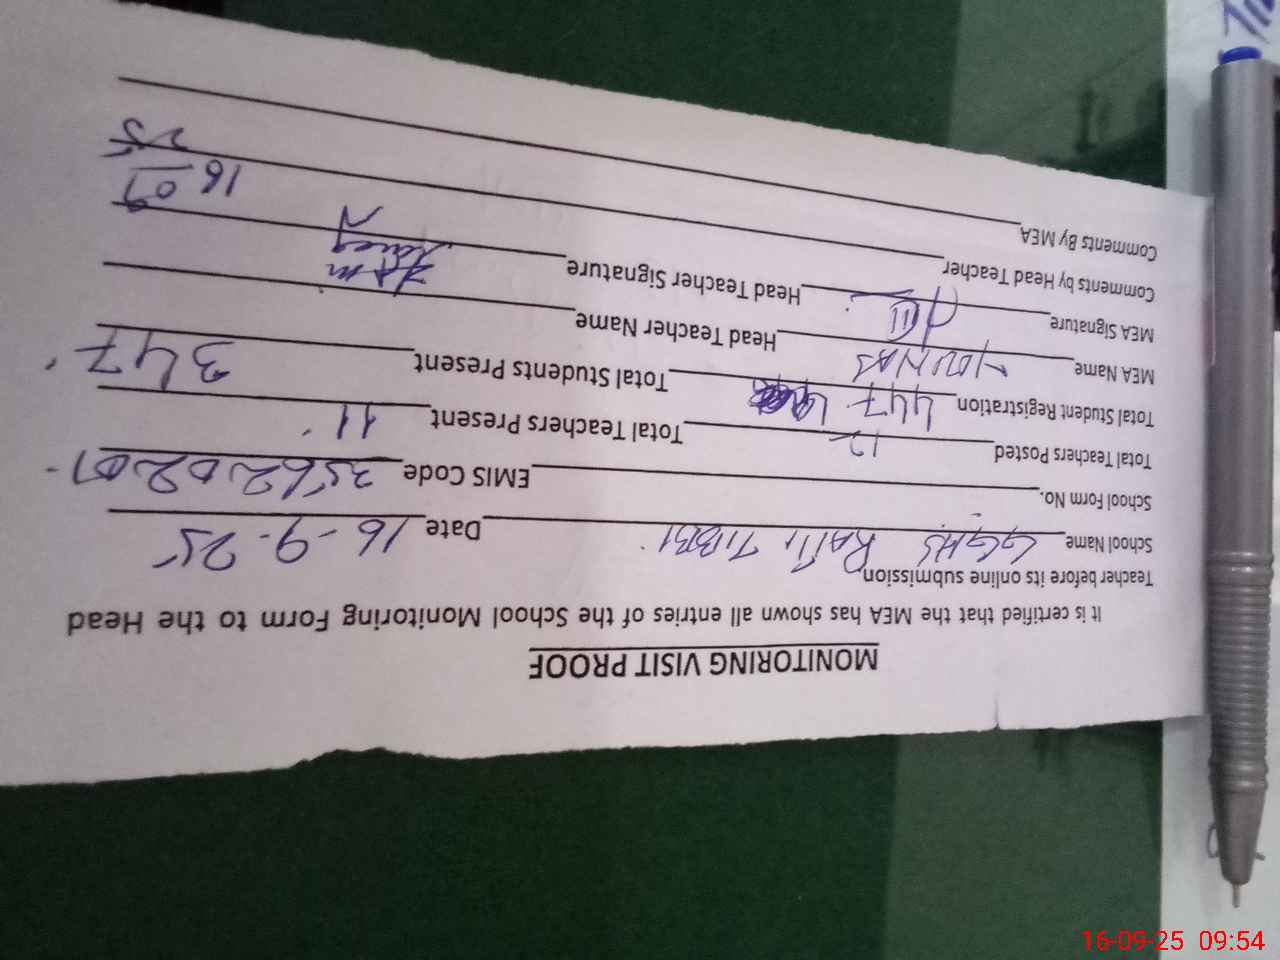 MONITORING VISIT PROOF
It is certified that the MEA has shown all entries of the School Monitoring Form to the Head
Teacher before its online submission
School Name GGHS RATTI TIBBI Date 16-9-25
School Form No. EMIS Code
Total Teachers Posted 12 Total Teachers Present 11
Total Student Registration 447 Total Students Present 347
MEA Name YOUNAS Head Teacher Name
MEA Signature Head Teacher Signature
Comments by Head Teacher 16 09
25
Comments By MEA
16-09-25 09:54